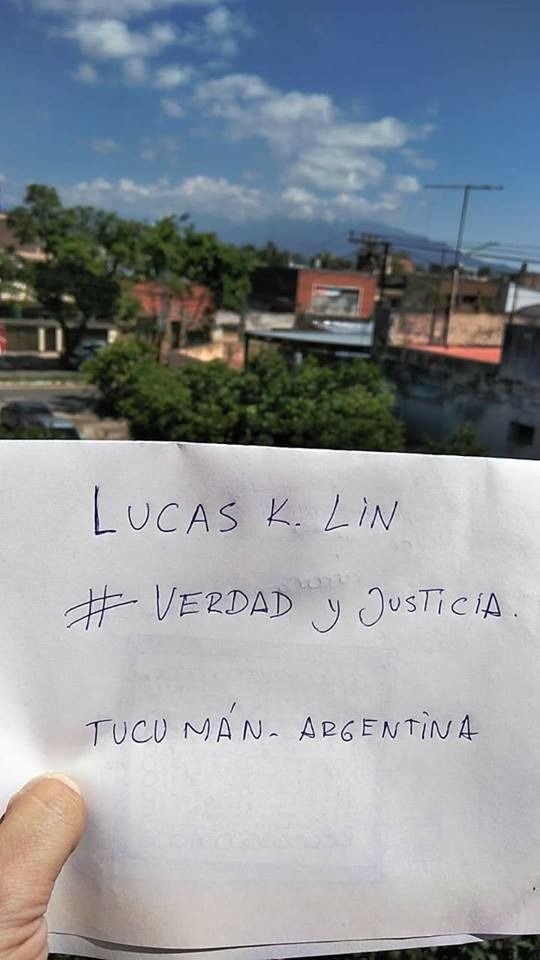 LUCAS K. LIN
# VERDAD y JUSTICIA.
TUCUMÁN- ARGENTINA